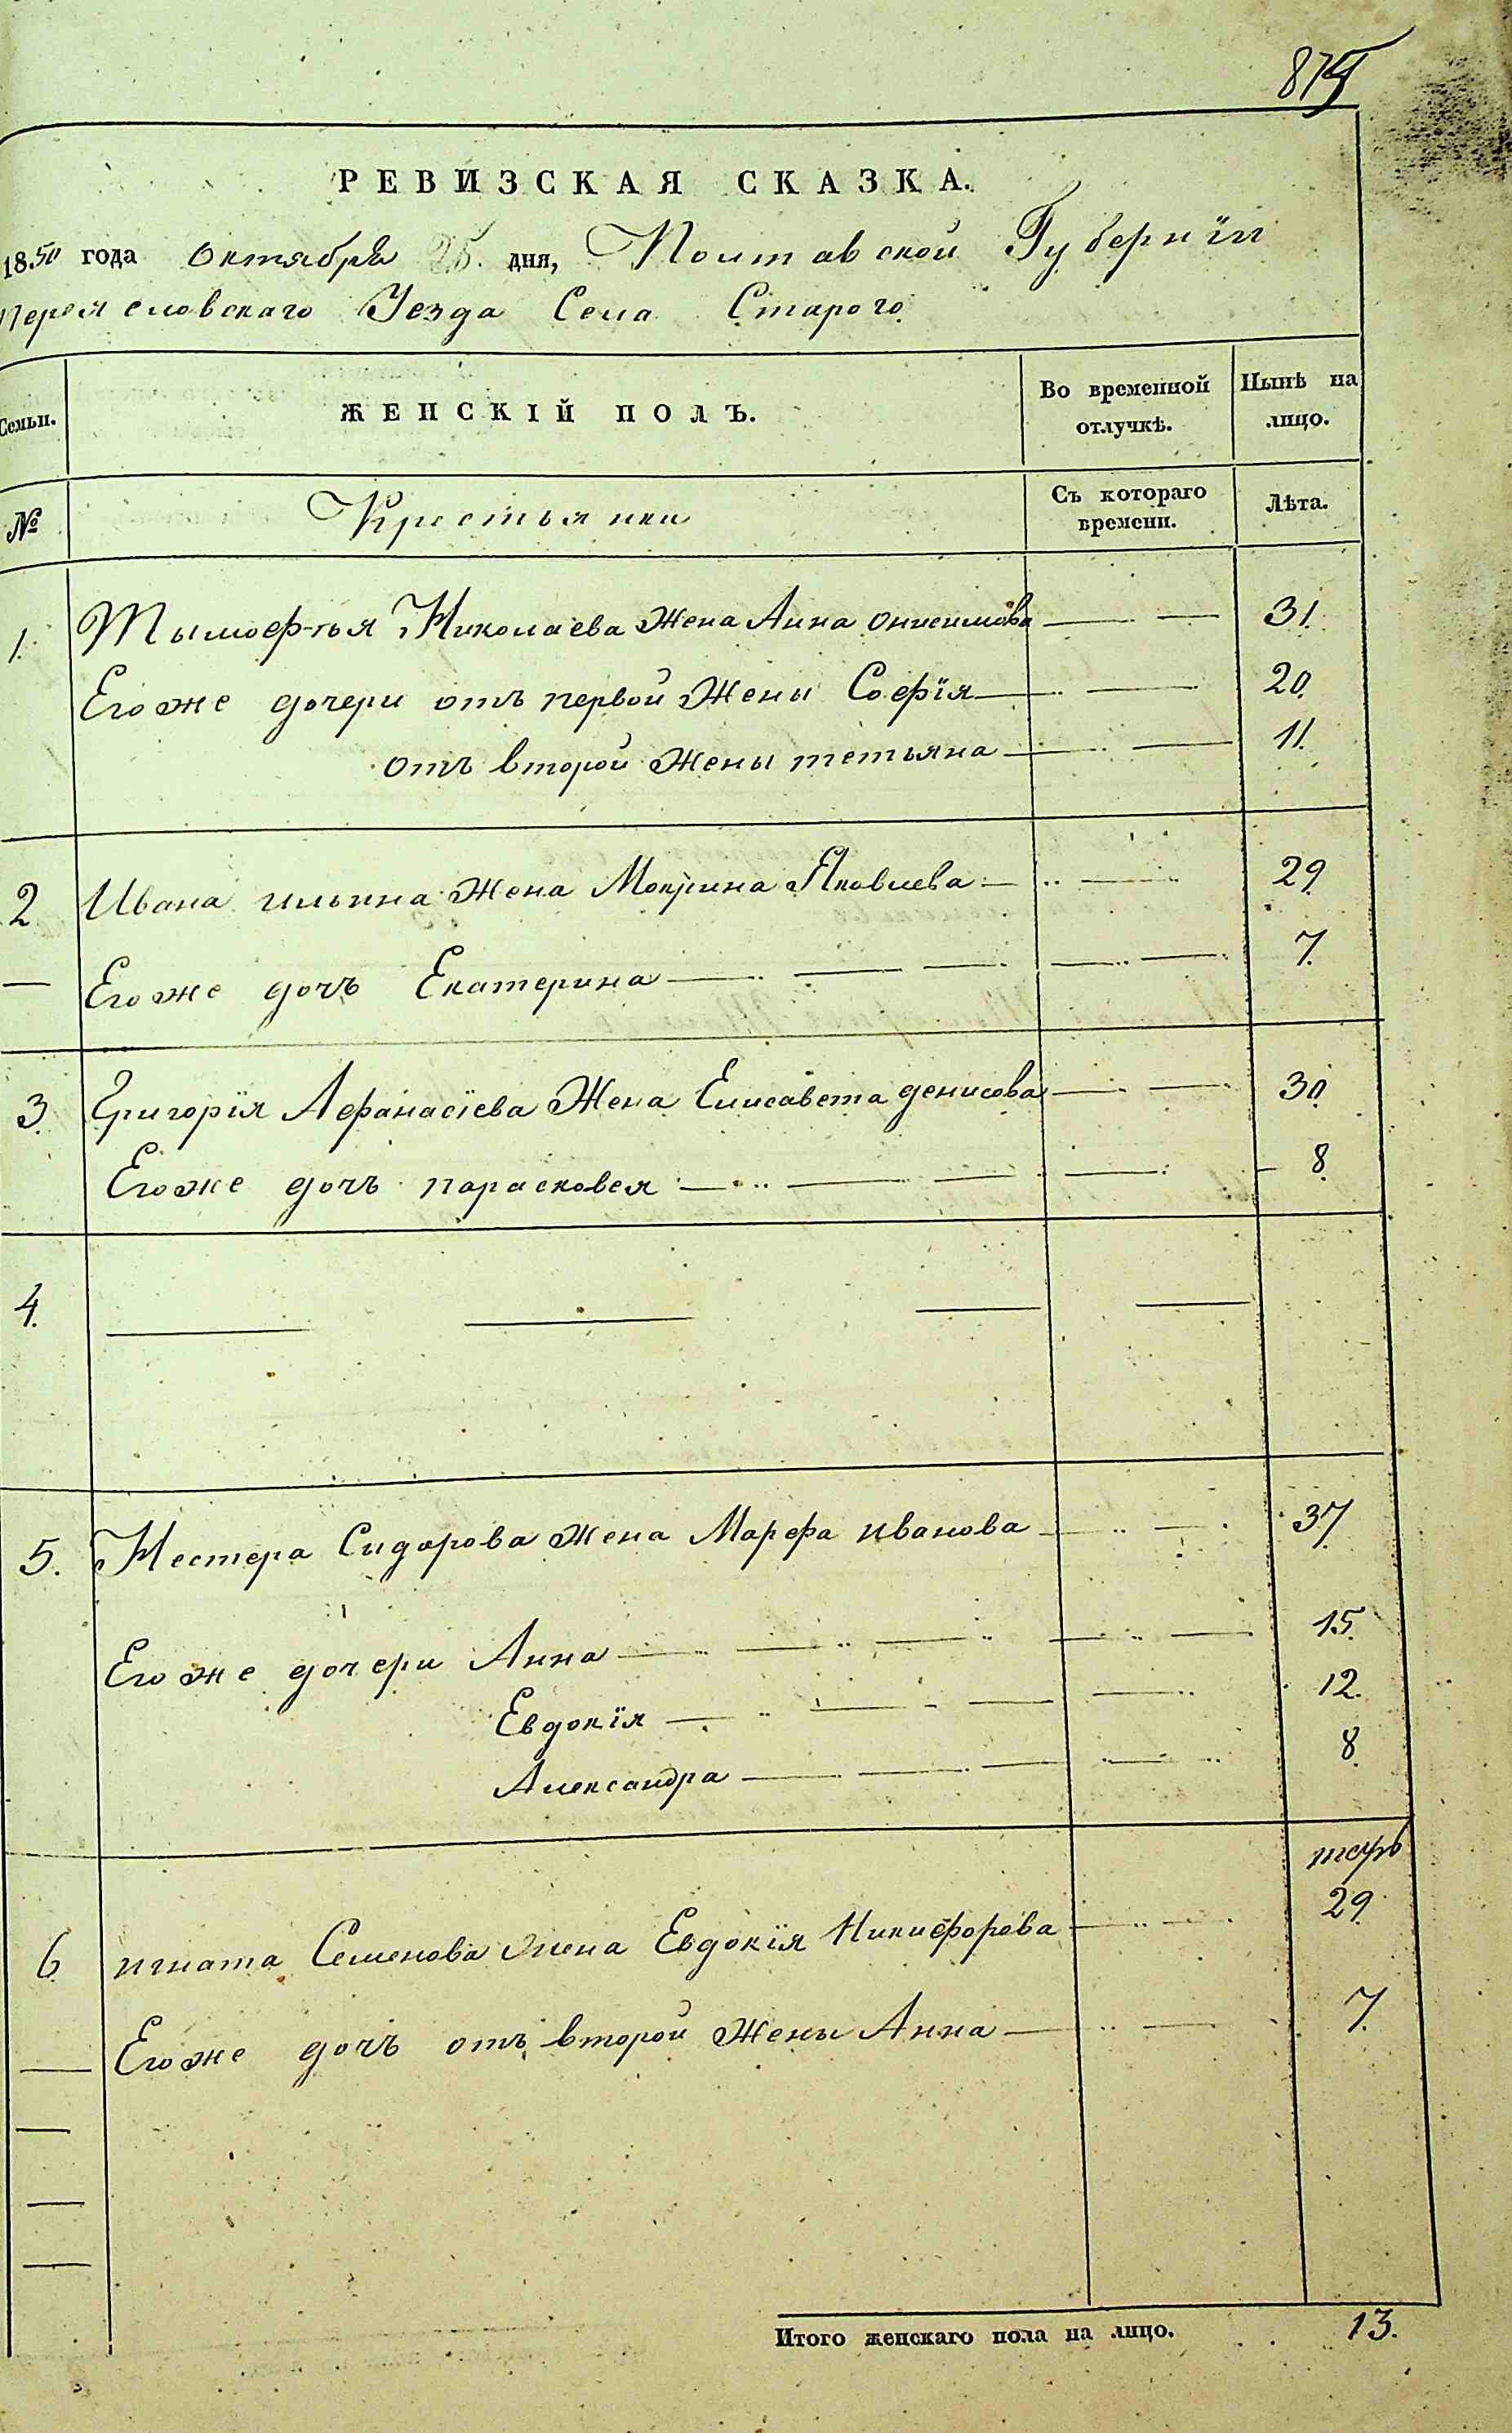 РЕВИЗСКАЯ СКАЗКА.
1850 года октября 25. дня, Полтавской Губернїи
Переяславскаго Уезда Села Старого
Семьи. ЖЕНСКІЙ ПОЛЪ. Во временной отлучкѣ. Нынѣ на лицо.
№ Крестьянки Съ котораго времени. Лѣта.
1. Тымофтья Николаева Жена Анна онисимова 31.
Его же дочери отъ первой Жены Софїя 20.
отъ второй Жены тетьяна 11.
2 Ивана ильина Жена Мокрина Яковлева 29.
Его же дочъ Екатерина 7.
3. Григорїя Афанасїева Жена Елисавета денисова 30
Его же дочъ парасковея 8.
4.
5. Нестера Сидорова Жена Марфа иванова 37
Его же дочери Анна 15.
Евдокїя 12.
Александра 8.
6 игната Семенова жена Евдокїя Никифорова 29.
Его же дочъ отъ второй Жены Анна 7.
Итого женскаго пола на лицо. 13.